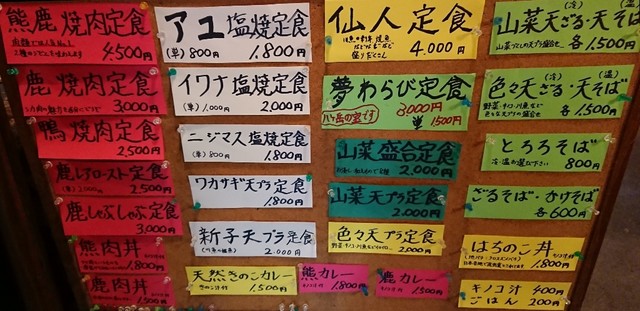 熊鹿焼肉定食
4,500円
鹿焼肉定食
3,000円
鴨焼肉定食
2,500円
鹿レアロースト定食
2,500円
鹿しゃぶしゃぶ定食
3,000円
熊肉丼
1,800円
鹿肉丼
1,500円
アユ塩焼定食
(単)800円 1,800円
イワナ塩焼定食
(単)1,000円 2,000円
ニジマス塩焼定食
(単)800円 1,800円
ワカサギ天プラ定食
1,800円
新子天プラ定食
2,000円
天然きのこカレー
1,500円
熊カレー
1,800円
鹿カレー
1,500円
仙人定食
4,000円
夢わらび定食
3000円
単1500円
山菜盛合定食
2,000円
山菜天プラ定食
2,000円
色々天プラ定食
2,000円
山菜天ざる・天そば
(温)
各1,500円
(冷) (温)
色々天ざる・天そば
各1,500円
とろろそば
800円
ざるそば・かけそば
各600円
はちのこ丼
1,800円
キノコ汁 400円
ごはん 200円